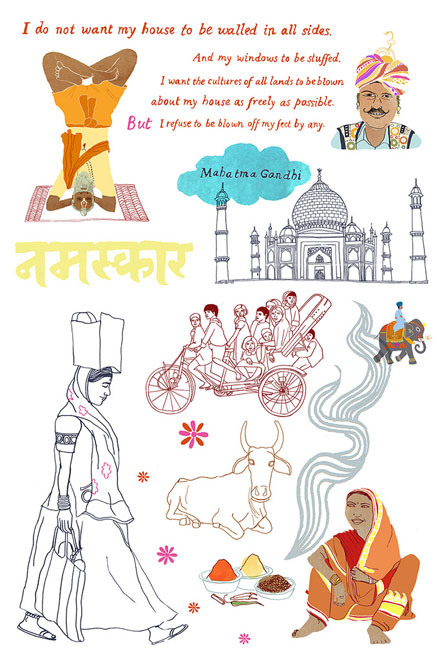 I do not want my house to be walled in all sides.
And my windows to be stuffed.
I want the cultures of all lands to be blown
about my house as freely as possible.
But I refuse to be blown off my feet by any.
Mahatma Gandhi
नमस्कार